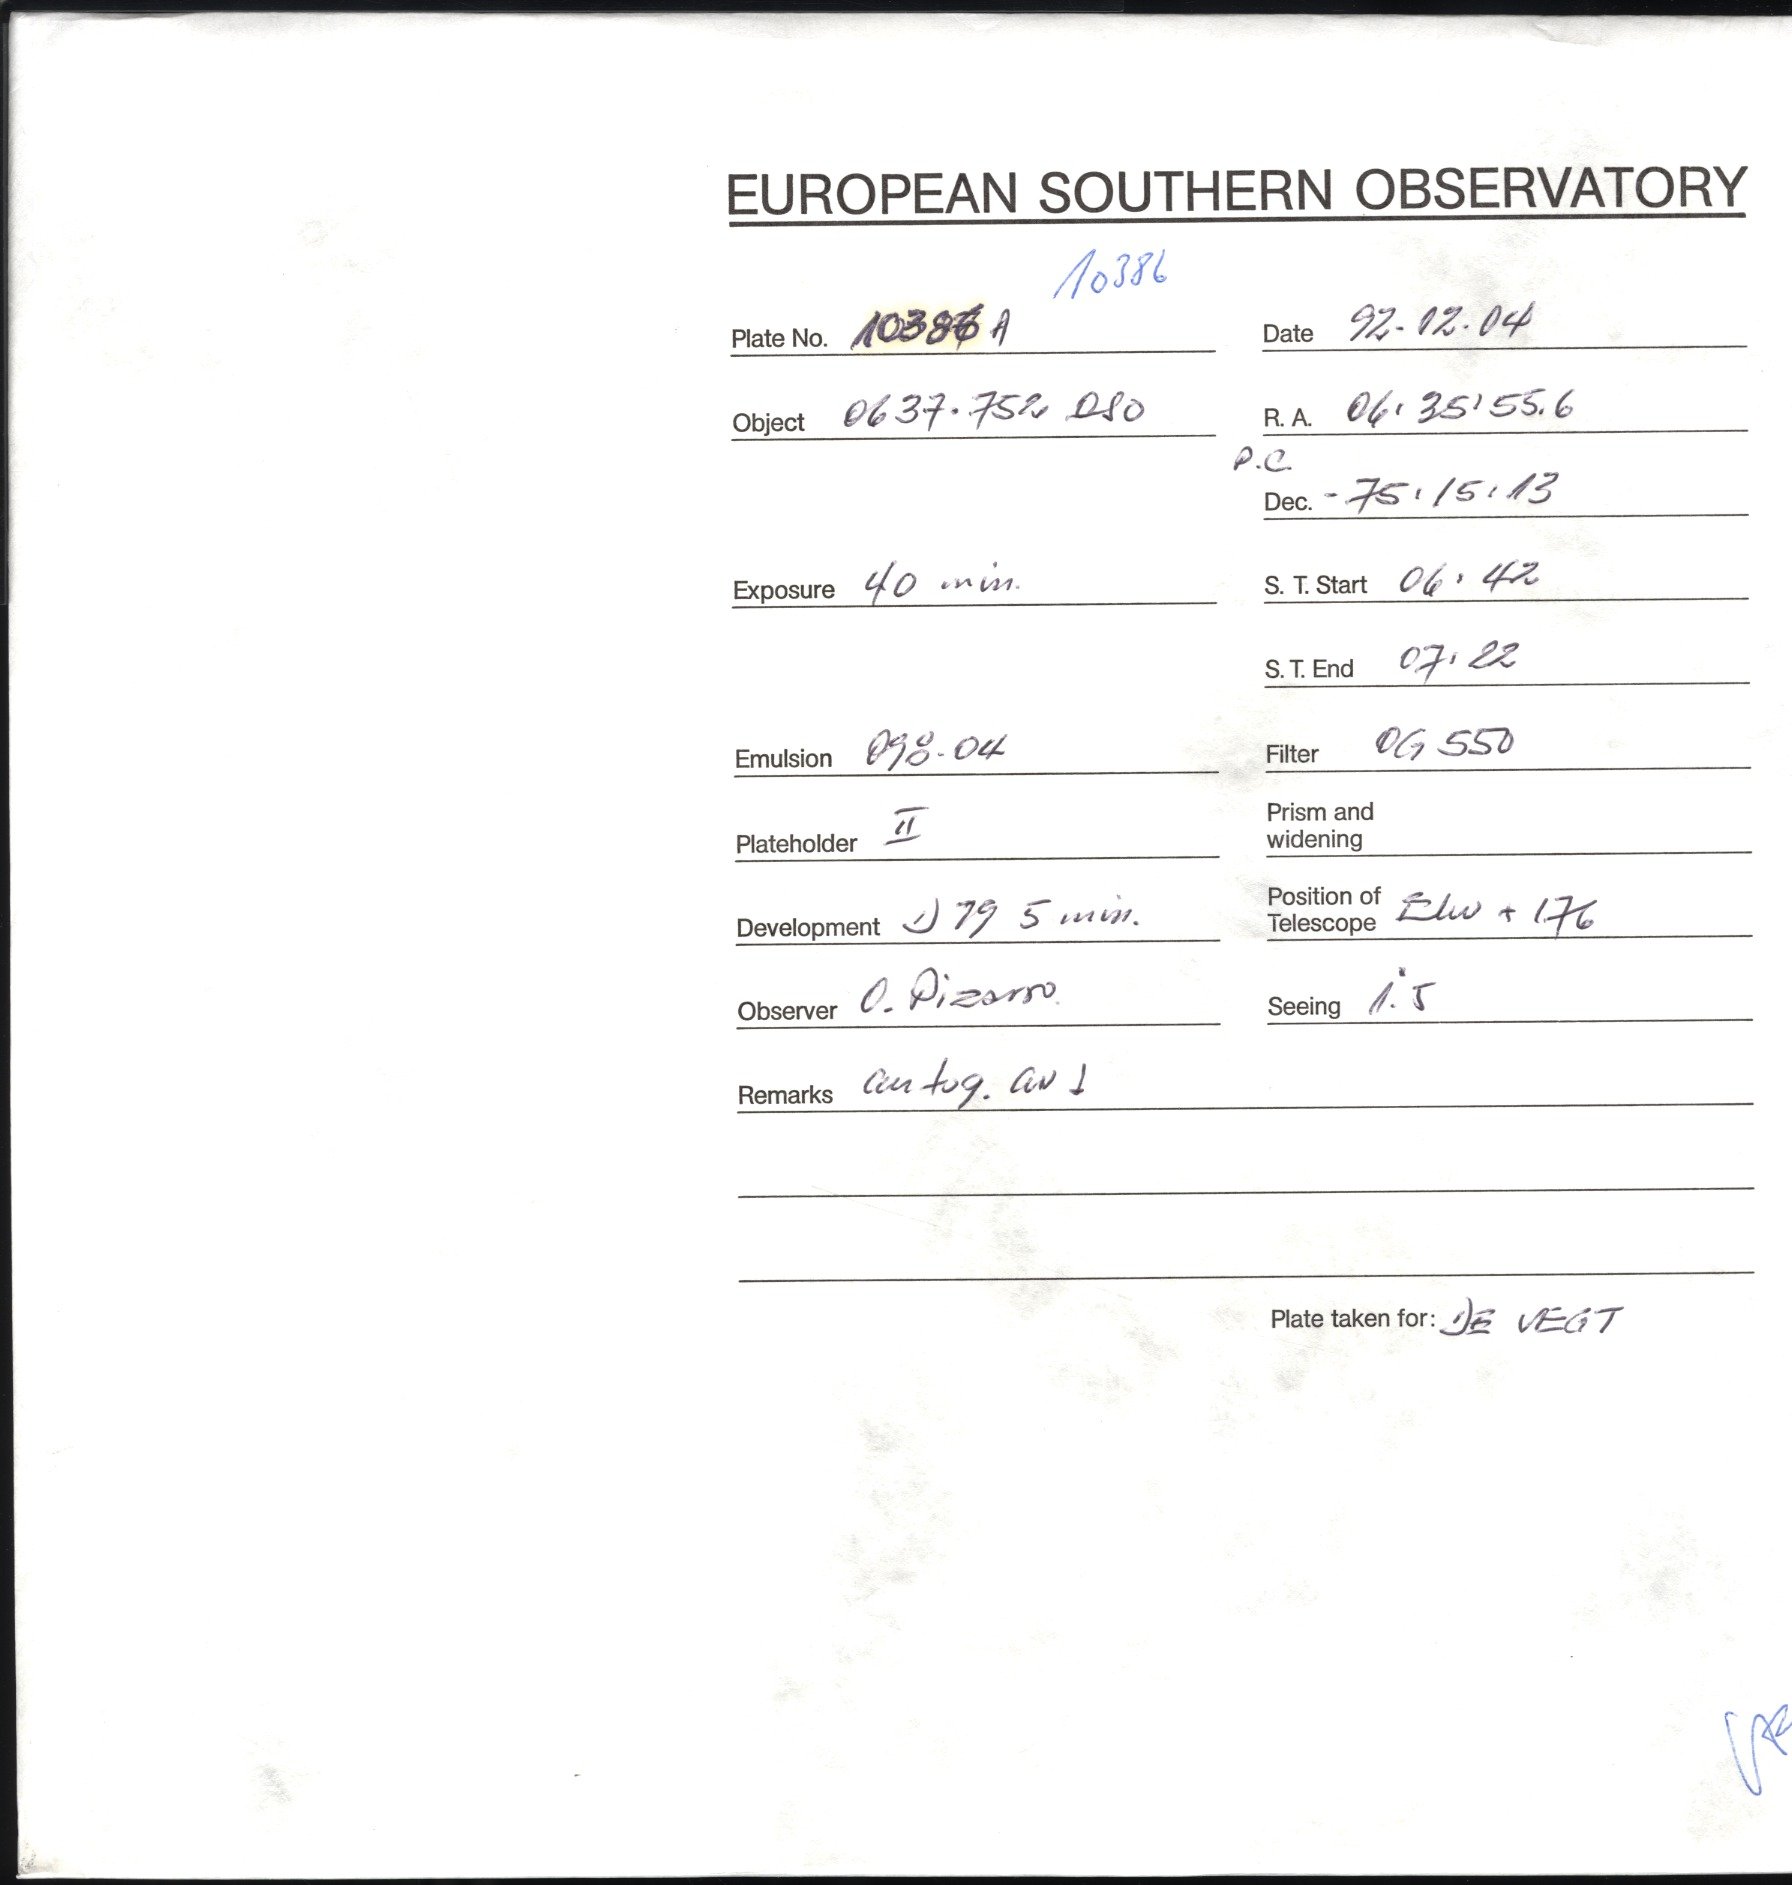 EUROPEAN SOUTHERN OBSERVATORY
10386
Plate No. 10386 A Date 92-12-04
Object 0637.752 QSO R. A. 06:35:55.6
P.C.
Dec. -75:15:13
Exposure 40 min. S. T. Start 06:42
S. T. End 07:22
Emulsion 098-04 Filter OG 550
Plateholder II Prism and
widening
Development D 19 5 min. Position of
Telescope + 1.76
Observer O. Pizarro Seeing 1.5
Remarks autog.
Plate taken for: DE VEGT